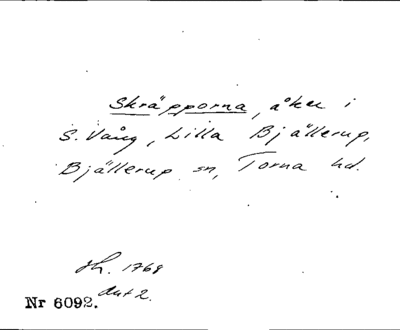 Skräpporna, åker i
S. Vång, Lilla Bjällerup,
Bjällerup sn, Torna hd.
sh. 1769
akt 2.
Nr 6092.